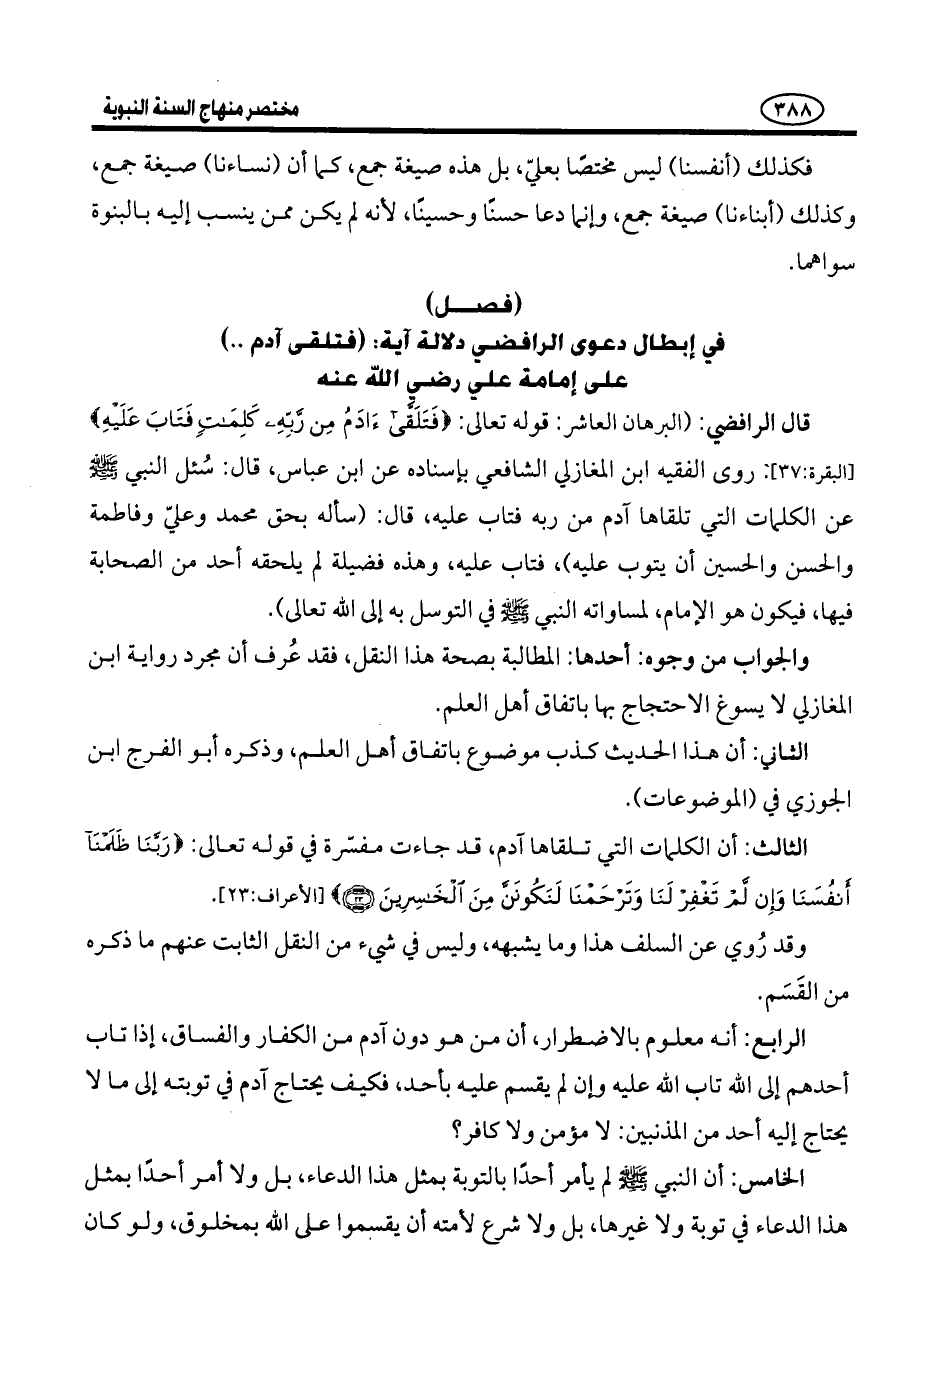 ٣٨٨
مختصر منهاج السنة النبوية
فكذلك (أنفسنا) ليس مختصًا بعليّ، بل هذه صيغة جمع، كما أن (نساءنا) صيغة جمع،
وكذلك (أبناءنا) صيغة جمع، وإنما دعا حسنًا وحسينًا، لأنه لم يكن ممن ينسب إليه بالبنوة
سواهما.
(فصل)
في إبطال دعوى الرافضي دلالة آية: (فتلقى آدم ..)
على إمامة علي رضي الله عنه
قال الرافضي: (البرهان العاشر: قوله تعالى: ﴿فَتَلَقَّىٰٓ ءَادَمُ مِن رَّبِّهِۦ كَلِمَٰتٍ فَتَابَ عَلَيْهِ﴾
[البقرة:٣٧]: روى الفقيه ابن المغازلي الشافعي بإسناده عن ابن عباس، قال: سُئل النبي ﷺ
عن الكلمات التي تلقاها آدم من ربه فتاب عليه، قال: (سأله بحق محمد وعليّ وفاطمة
والحسن والحسين أن يتوب عليه)، فتاب عليه، وهذه فضيلة لم يلحقه أحد من الصحابة
فيها، فيكون هو الإمام، لمساواته النبي ﷺ في التوسل به إلى الله تعالى).
والجواب من وجوه: أحدها: المطالبة بصحة هذا النقل، فقد عُرف أن مجرد رواية ابن
المغازلي لا يسوغ الاحتجاج بها باتفاق أهل العلم.
الثاني: أن هذا الحديث كذب موضوع باتفاق أهل العلم، وذكره أبو الفرج ابن
الجوزي في (الموضوعات).
الثالث: أن الكلمات التي تلقاها آدم، قد جاءت مفسّرة في قوله تعالى: ﴿رَبَّنَا ظَلَمْنَآ
أَنفُسَنَا وَإِن لَّمْ تَغْفِرْ لَنَا وَتَرْحَمْنَا لَنَكُونَنَّ مِنَ ٱلْخَٰسِرِينَ ٢٣﴾ [الأعراف:٢٣].
وقد رُوي عن السلف هذا وما يشبهه، وليس في شيء من النقل الثابت عنهم ما ذكره
من القَسَم.
الرابع: أنه معلوم بالاضطرار، أن من هو دون آدم من الكفار والفساق، إذا تاب
أحدهم إلى الله تاب الله عليه وإن لم يقسم عليه بأحد، فكيف يحتاج آدم في توبته إلى ما لا
يحتاج إليه أحد من المذنبين: لا مؤمن ولا كافر؟
الخامس: أن النبي ﷺ لم يأمر أحدًا بالتوبة بمثل هذا الدعاء، بل ولا أمر أحدًا بمثل
هذا الدعاء في توبة ولا غيرها، بل ولا شرع لأمته أن يقسموا على الله بمخلوق، ولو كان